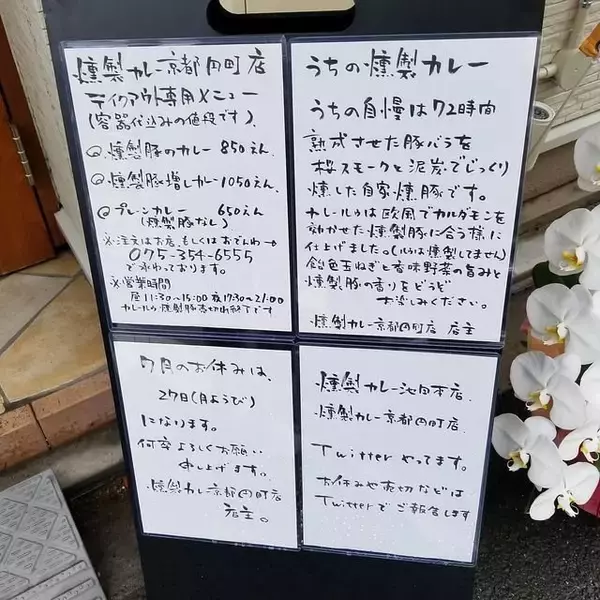 燻製カレー京都円町店
テイクアウト専用メニュー
(容器代込みの値段です)
燻製豚のカレー 850えん
燻製豚増しカレー 1050えん
プレーンカレー 650えん
(燻製豚なし)
※注文はお店もしくはおでんわ→
075-354-6555
で承わっております。
※営業時間
昼11:30~15:00 夜17:30~21:00
カレールゥ・燻製豚売切れ終了です
うちの燻製カレー
うちの自慢は72時間
熟成させた豚バラを
桜スモークと泥炭でじっくり
燻した自家燻豚です。
カレールゥは欧風でカルダモンを
効かせた燻製豚に合う様に
仕上げました。(ルゥは燻製してません)
飴色玉ねぎと香味野菜の旨みと
燻製豚の香りをどうぞ
お楽しみください。
燻製カレー京都円町店 店主
7月のお休みは、
27日(月ようび)
になります。
何卒よろしくお願い
申し上げます。
燻製カレー京都円町店
店主。
燻製カレー池田本店.
燻製カレー京都円町店.
Twitterやってます。
お休みや売切などは
Twitterでご報告します